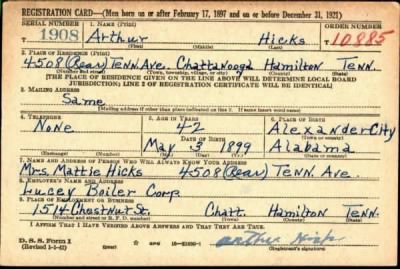 REGISTRATION CARD—(Men born on or after February 17, 1897 and on or before December 31, 1921)
SERIAL NUMBER 1. NAME (Print) ORDER NUMBER
1908 Arthur Hicks 10885
(First) (Middle) (Last)
2. PLACE OF RESIDENCE (Print)
4508 (Rear) TENN. Ave. Chattanooga Hamilton Tenn.
(Number and street) (Town, township, village, or city) (County) (State)
[THE PLACE OF RESIDENCE GIVEN ON THE LINE ABOVE WILL DETERMINE LOCAL BOARD
JURISDICTION; LINE 2 OF REGISTRATION CERTIFICATE WILL BE IDENTICAL]
3. MAILING ADDRESS
Same
[Mailing address if other than place indicated on line 2. If same insert word same]
4. TELEPHONE 5. AGE IN YEARS 6. PLACE OF BIRTH
None 42 Alexander City
DATE OF BIRTH
May 3 1899 Alabama
(Mo.) (Day) (Yr.) (State or country)
7. NAME AND ADDRESS OF PERSON WHO WILL ALWAYS KNOW YOUR ADDRESS
Mrs. Mattie Hicks 4508 (Rear) TENN. Ave.
8. EMPLOYER'S NAME AND ADDRESS
Lucey Boiler Corp.
9. PLACE OF EMPLOYMENT OR BUSINESS
1514 Chestnut St. Chatt. Hamilton Tenn.
(Number and street or R. F. D. number) (Town) (County) (State)
I AFFIRM THAT I HAVE VERIFIED ABOVE ANSWERS AND THAT THEY ARE TRUE.
D. S. S. Form 1
(Revised 1-1-42) (over) (Registrant's signature)